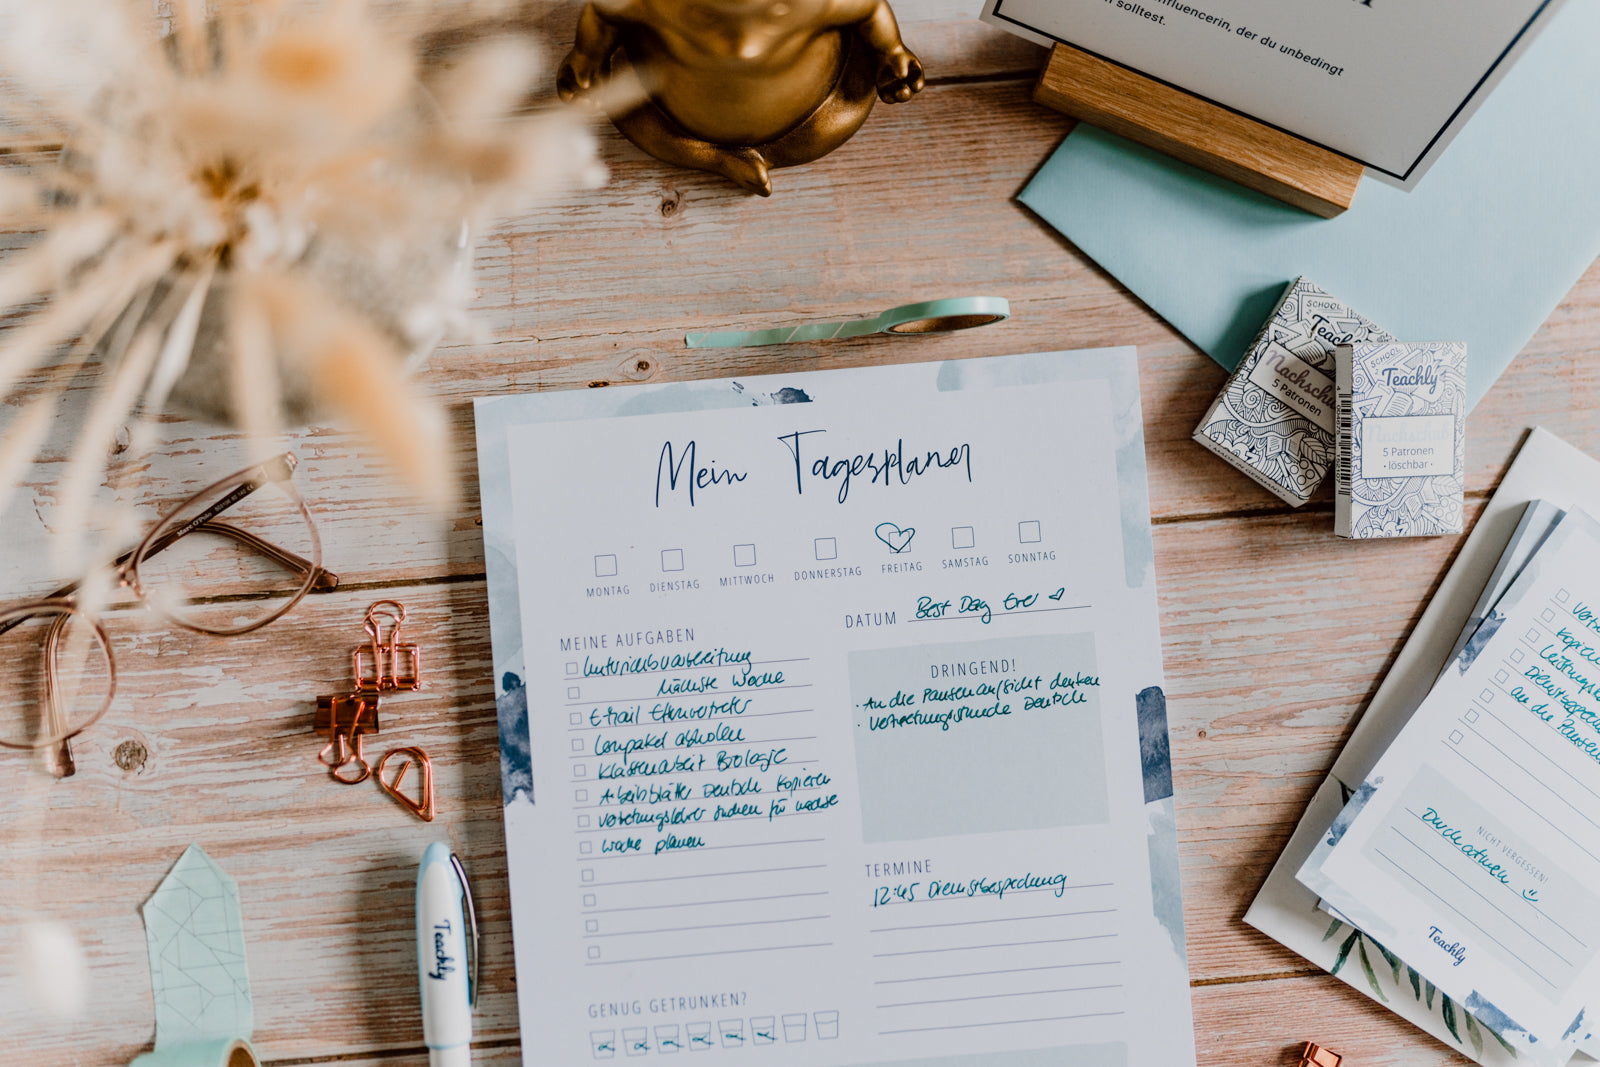 influencerin, der du unbedingt
solltest.
SCHOOL
Teachly
Nachschub
5 Patronen
MADE IN GERMANY
SCHOOL
Teachly
Nachschub
5 Patronen
• löschbar •
Mein Tagesplaner
MONTAG DIENSTAG MITTWOCH DONNERSTAG FREITAG SAMSTAG SONNTAG
DATUM Best Day Ever
MEINE AUFGABEN
Unterrichtsvorbereitung
nächste Woche
E-Mail Elternvertreter
Lernpaket abholen
Klassenarbeit Biologie
Arbeitsblätter Deutsch kopieren
Vertretungslehrer suchen für nächste
Woche planen
DRINGEND!
· An die Pausenaufsicht denken
· Vertretungsstunde Deutsch
TERMINE
12:45 Dienstbesprechung
GENUG GETRUNKEN?
Teachly
Kopieren
an die Pausen
NICHT VERGESSEN!
Durchatmen
Teachly